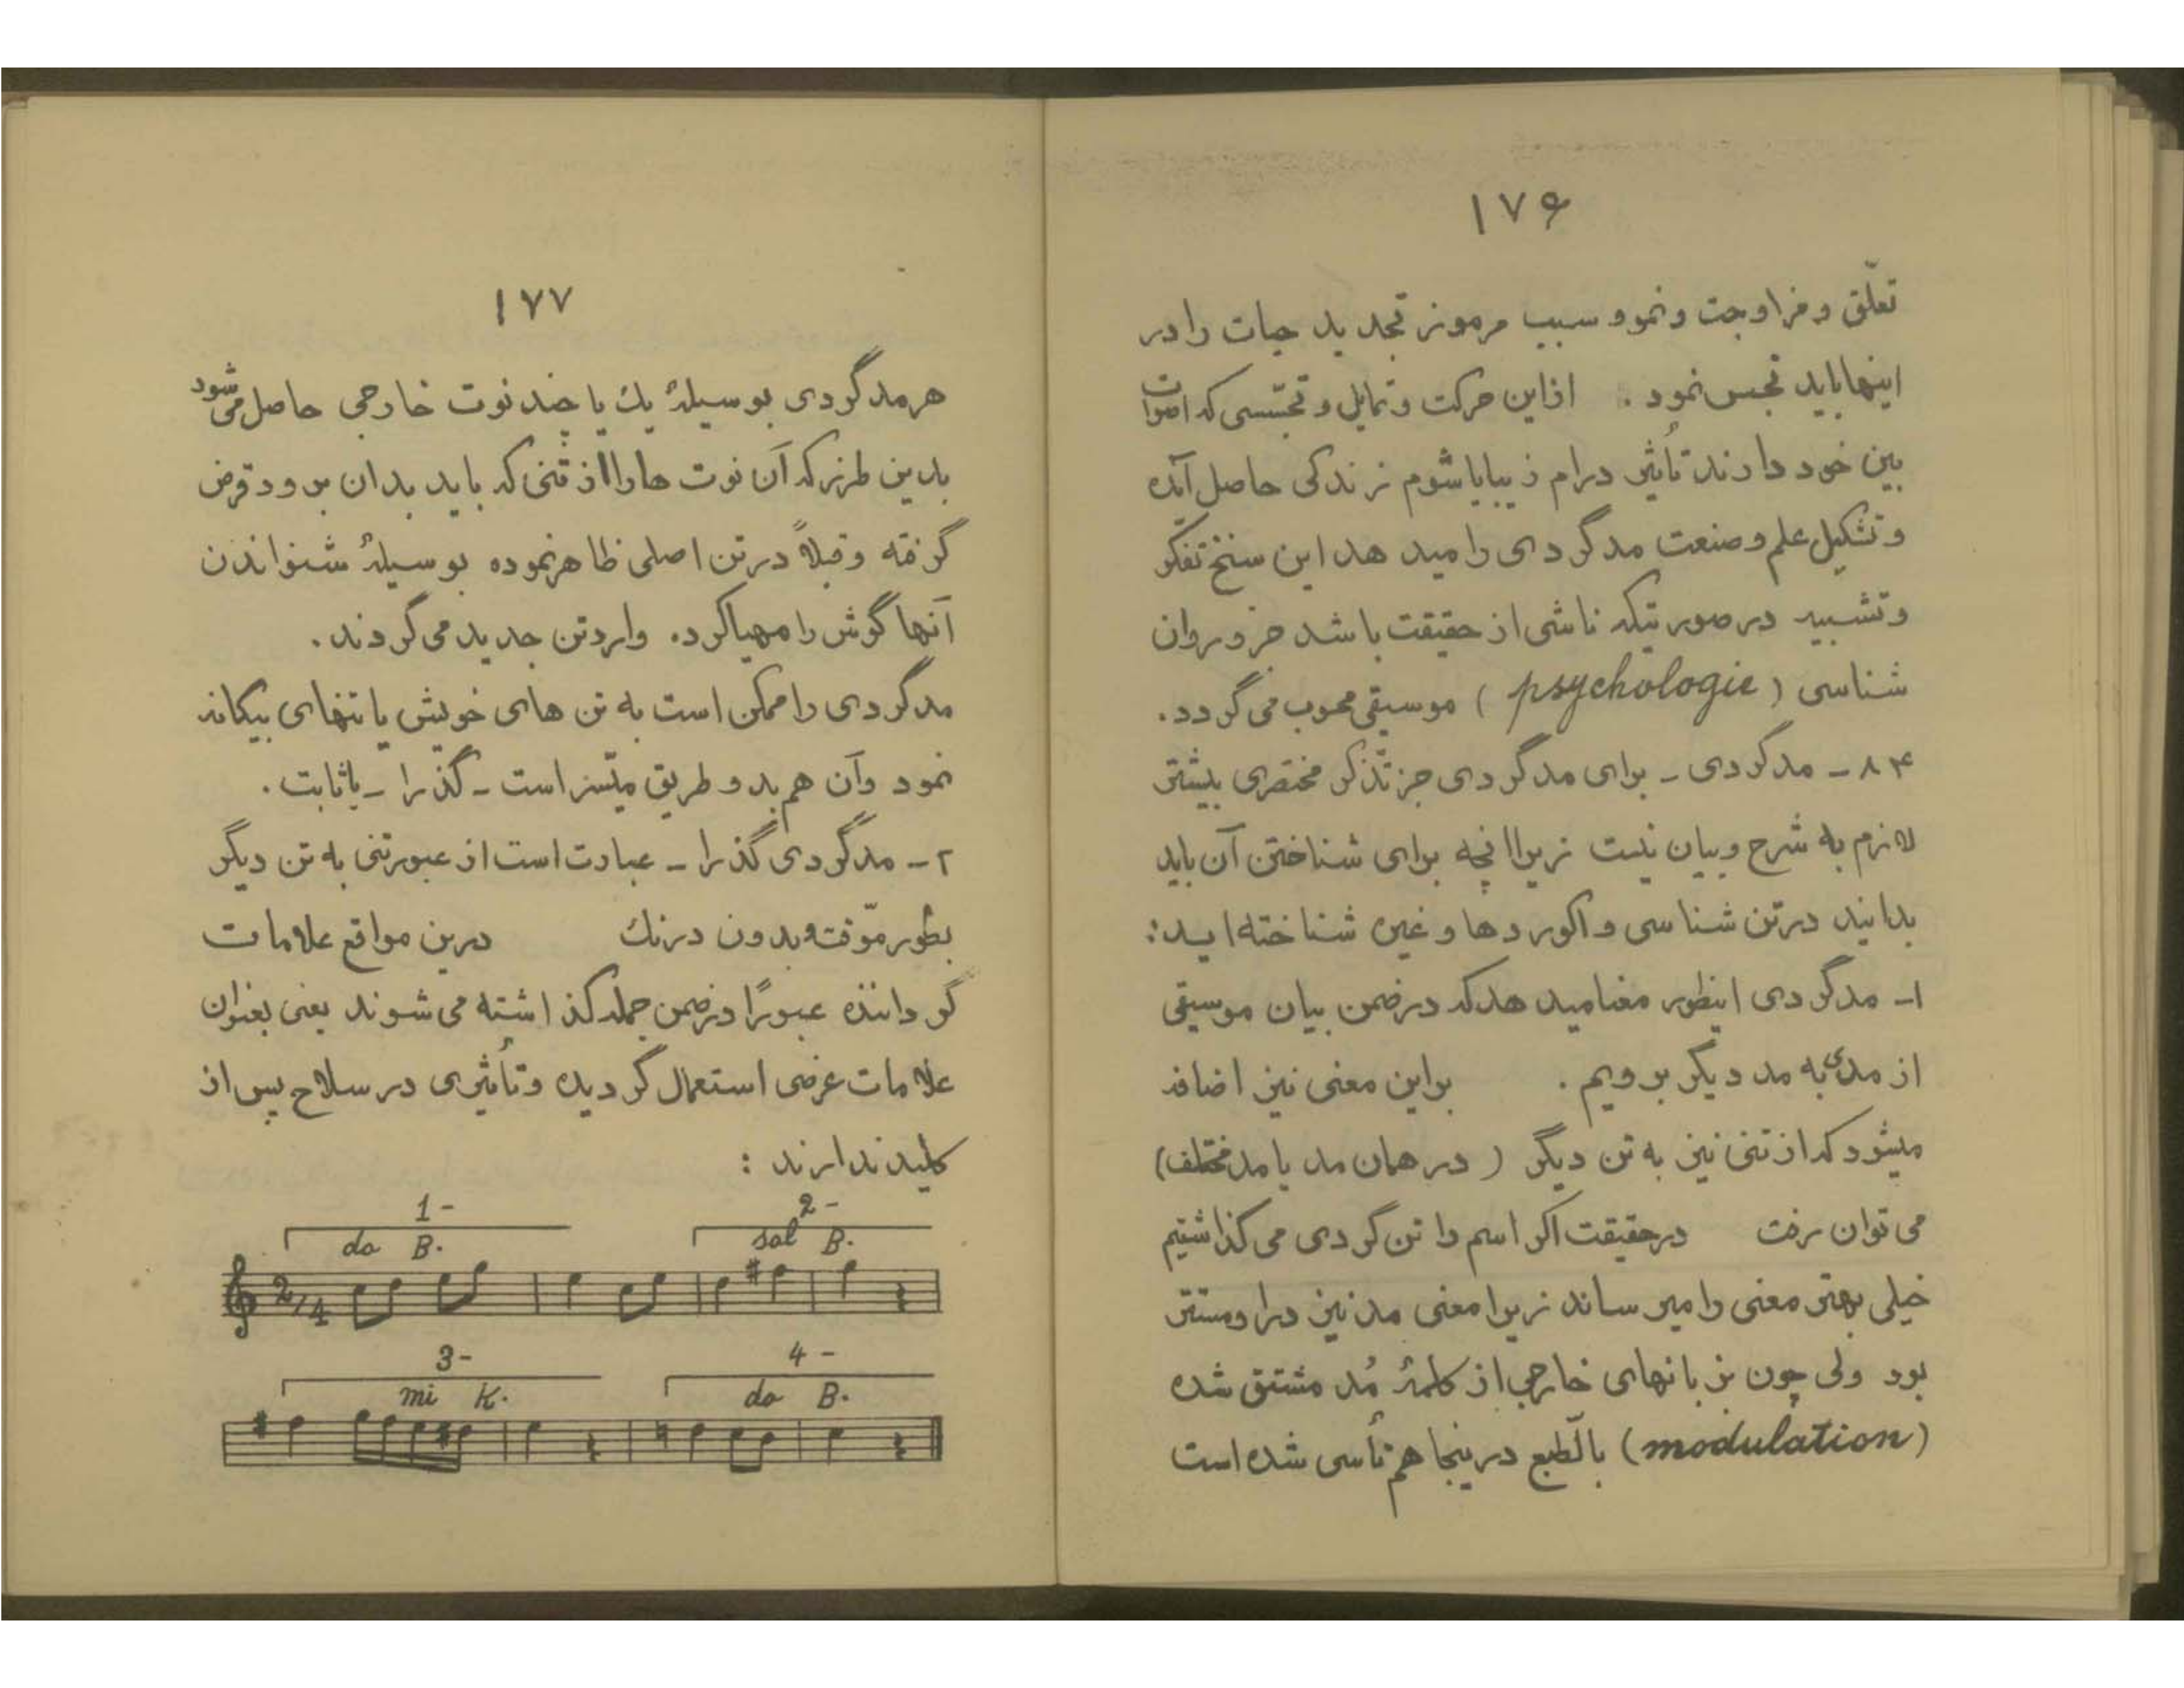 ۱۷۶
تعلّق و مزاوجت و نمو و سبب مرموز تجدید حیات را در
اینها باید تجسس نمود . ازاین حرکت و تمایل و تجسّسی که اصوات
بین خود دارند تأثیر درام زیبا یا شوم زندگی حاصل آمده
و تشکیل علم و صنعت مدگردی را میدهد این سنخ تفکر
و تشبیه در صورتیکه ناشی از حقیقت باشد جزو روان
شناسی ( psychologie ) موسیقی محسوب می گردد.
۸۴ – مدگردی – برای مدگردی جز تذکر مختصری بیشتر
لازم به شرح و بیان نیست زیرا آنچه برای شناختن آن باید
بدانید در تن شناسی و اکوردها و غیره شناخته اید:
۱– مدگردی اینطور معنا میدهد که در ضمن بیان موسیقی
از مدی به مد دیگر برویم . براین معنی نیز اضافه
میشود که از تنی نیز به تن دیگر ( در همان مد یا مد مختلف)
می توان رفت درحقیقت اگر اسم را تن گردی می گذاشتیم
خیلی بهتر معنی را میرساند زیرا معنی مد نیز در او مستتر
بود ولی چون بزبانهای خارجی از کلمهٔ مُد مشتق شده
(modulation) بالطّبع در ینجا هم تأسی شده است
۱۷۷
هر مدگردی بوسیلهٔ یك یا چند نوت خارجی حاصل می شود
بدین طرز که آن نوت هارا از تنی که باید بدان برود قرض
گرفته و قبلاً در تن اصلی ظاهر نموده بوسیلهٔ شنواندن
آنها گوش را مهیا کرده وارد تن جدید می گردند.
مدگردی را ممکن است به تن های خویش یا تنهای بیگانه
نمود و آن هم بدو طریق میّسر است – گذرا – یا ثابت .
۲– مدگردی گذرا – عبارت است از عبور تنی به تن دیگر
بطور موّقت و بدون درنك درین مواقع علامات
گرداننده عبوراً در ضمن جمله گذاشته می شوند یعنی بعنوان
علامات عرضی استعمال گردیده و تأثیری در سلاح پس از
کلید ندارند :
1– 2–
do B. sol B.
2/4
3– 4–
mi K. do B.